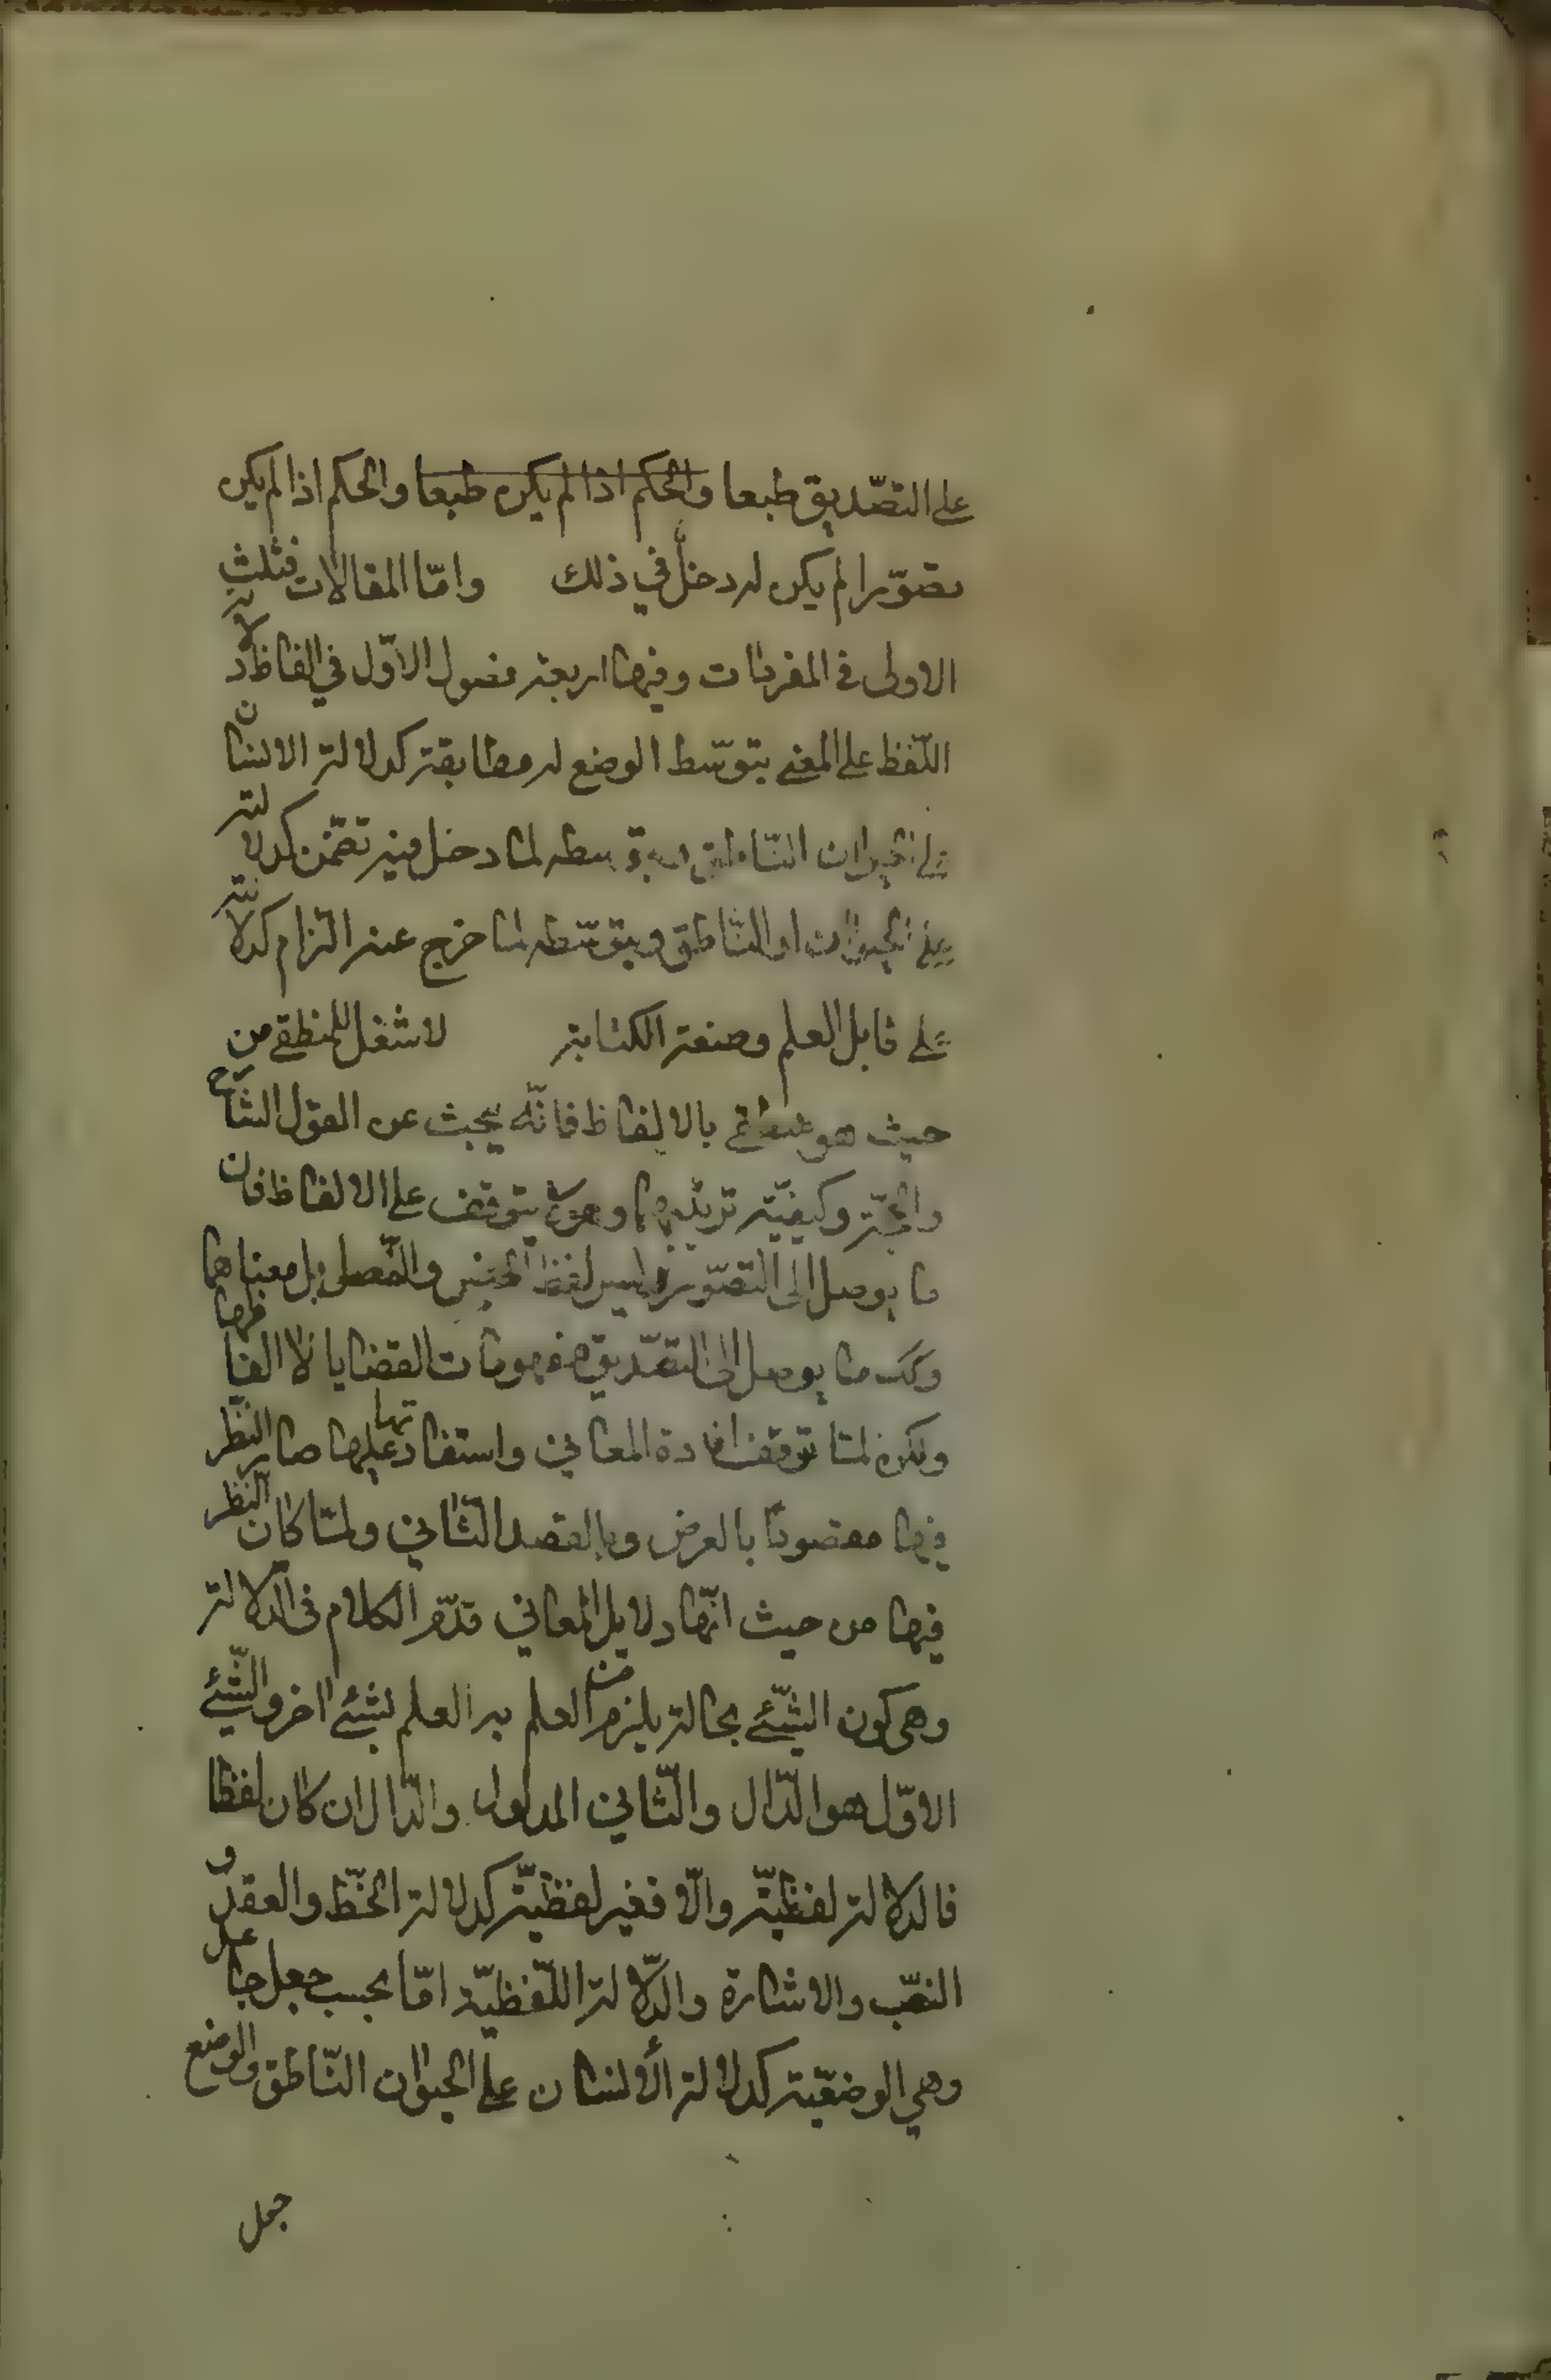 على التصّديق طبعا والحكم اذا لم يكن طبعا والحكم اذا لم يكن
تصوّرا لم يكن له دخلٌ في ذلك وامّا المقالات فثلث
الاولى في المفردات وفيها اربعة فصول الاوّل في الفاظ دلالة
اللّفظ على المعنى بتوسّط الوضع له مطابقة كدلالة الانسان
على الحيوان النّاطق وبتوسطه لما دخل فيه تضمّن كدلالته
على الحيوان او النّاطق وبتوسّطه لما خرج عنه التزام كدلالته
على قابل العلم وصنعة الكتابة لا شغل للمنطقي من
حيث هو منطقي بالالفاظ فانّه يبحث عن القول الشارح
والحجّة وكيفيّة ترتيبهما وهو لا يتوقف على الالفاظ فان
ما يوصل الى التصوّر ليس لفظ الجنس والفّصل بل معناهما
وكك ما يوصل الى التصّديق مفهومات القضايا لا الفاظها
ولكن لما توقف افادة المعاني واستفادتها عليها صار النّظر
فيها مقصودًا بالعرض وبالقصد الثّاني ولمّا كان النّظر
فيها من حيث انّها دلايل المعاني قدّم الكلام في الدلالة
وهي كون الشّئ بحالة يلزم من العلم به العلم بشئ اخر والشّئ
الاوّل هو الدّال والثّاني المدلول والدّال ان كان لفظا
فالدلالة لفظيّة والّا فغير لفظيّة كدلالة الخّط والعقد و
النصّب والاشارة والدّلالة اللّفظيّة امّا بحسب جعل جاعل
وهي الوضعّية كدلالة الأنسان على الحيوان النّاطق والوضع
جعل